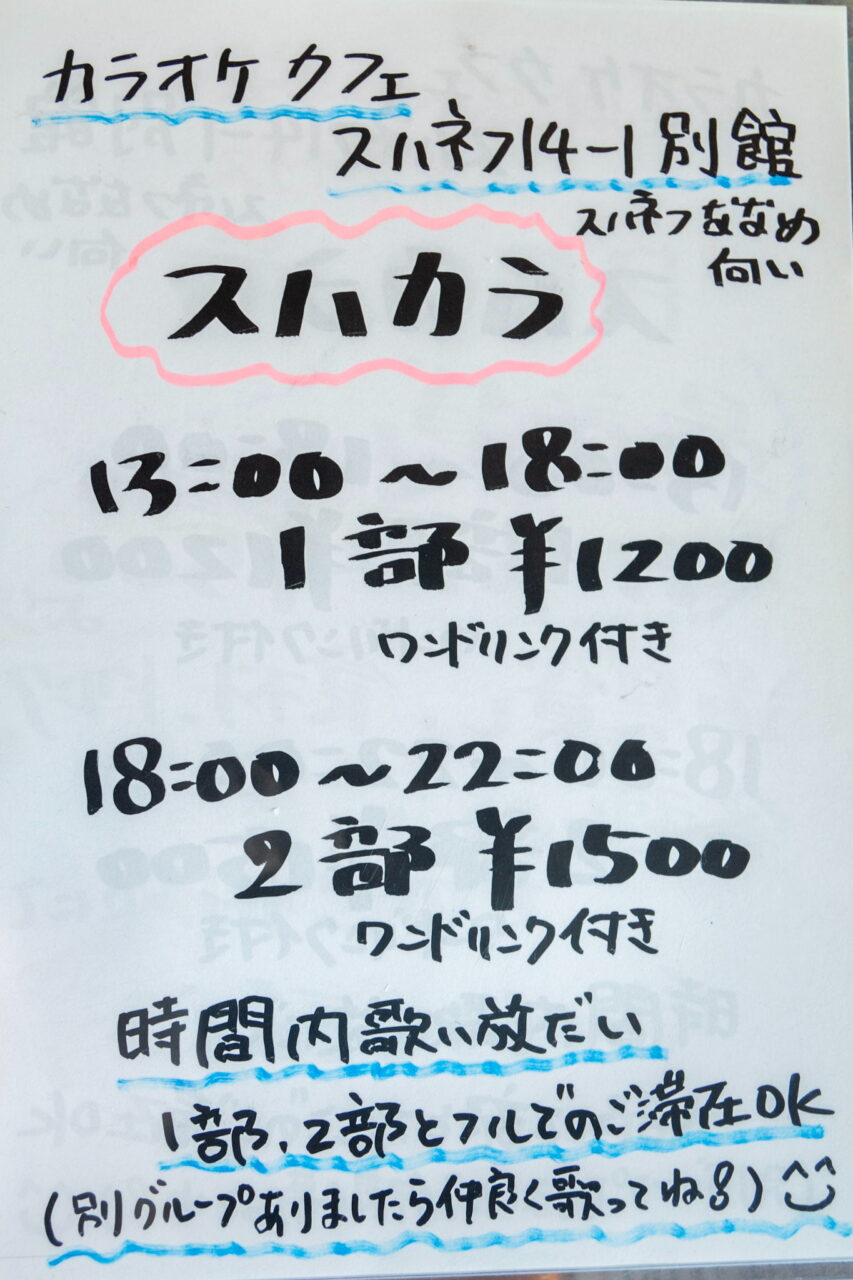 カラオケ カフェ
スハネフ14-1 別館
スハネフななめ
向い
スハカラ
13:00 〜 18:00
1部 ¥1200
ワンドリンク付き
18:00 〜 22:00
2部 ¥1500
ワンドリンク付き
時間内歌い放だい
1部、2部とフルでのご滞在OK
(別グループありましたら仲良く歌ってね!) ^^